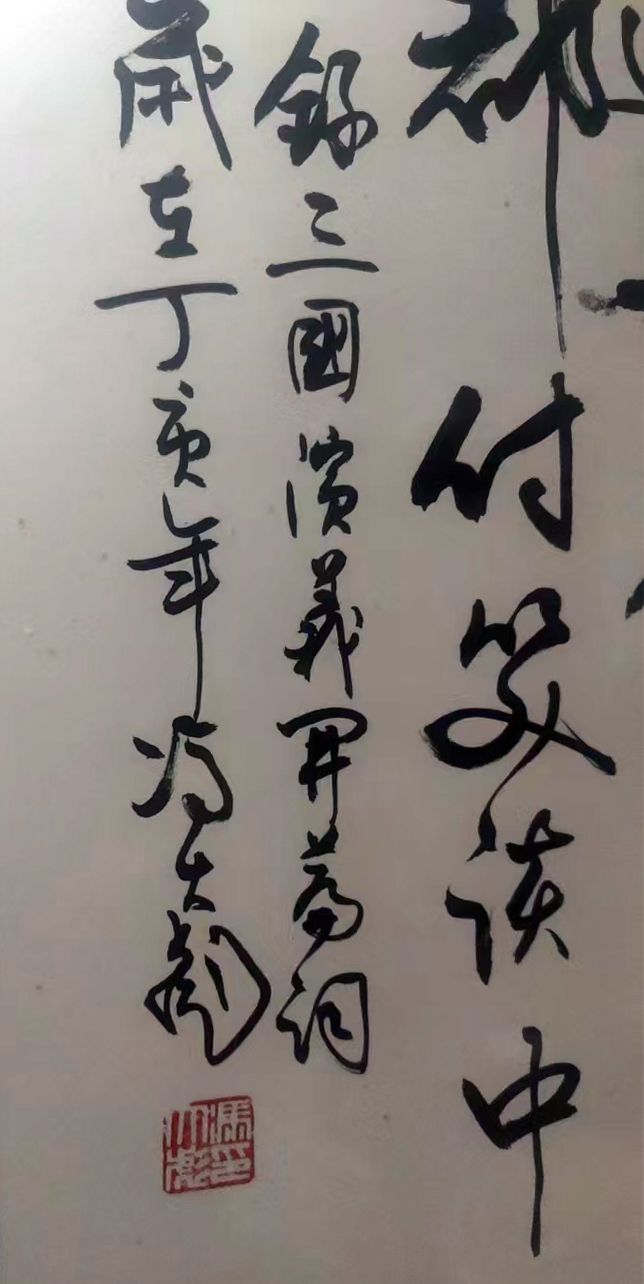 都付笑談中
錄三國演義開篇詞
歲在丁亥年馮大彪
馮大彪印